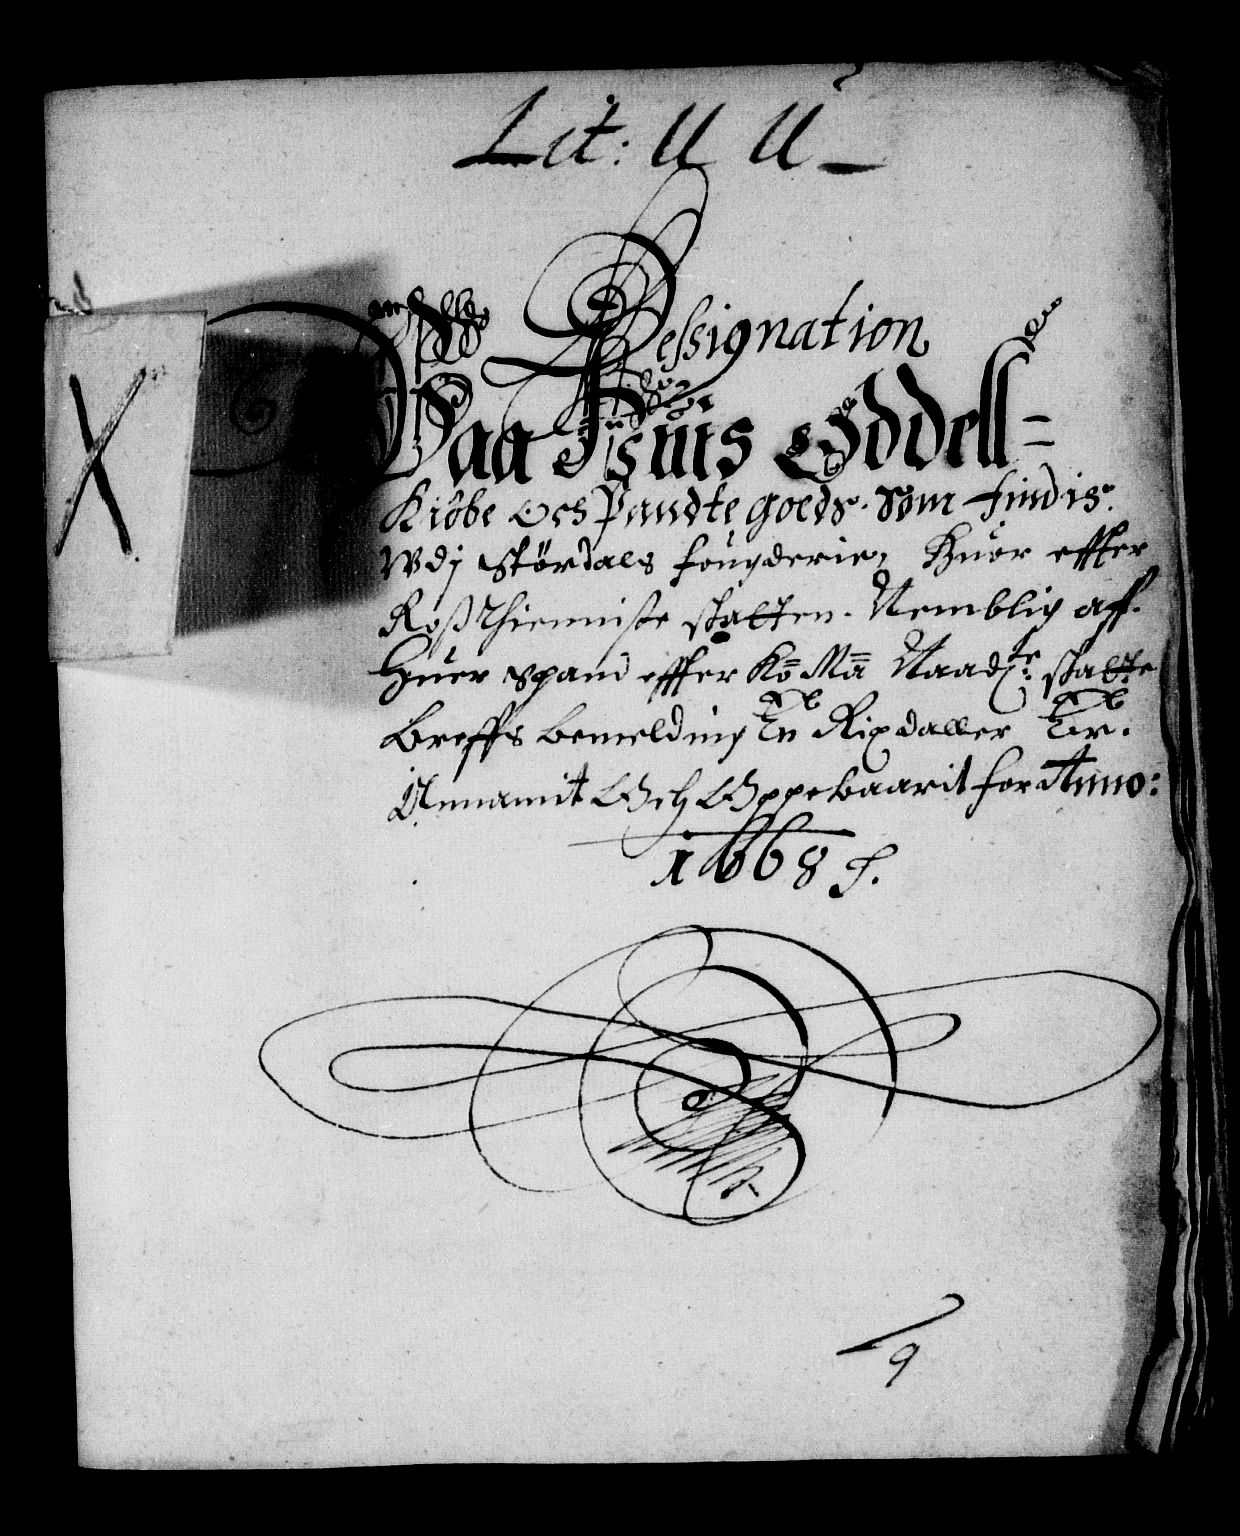 Lit: U U
X
Dessignation
Paa Jtzuls Oddell=
Kiöbe och Pandte goeds. Som findis
Wdj Stördals fougderie, Huor effter
Roß Thienniste skatten. Nemblig aff.
Huer spand effter Ko= Ma= Naadste: skatte
Breffs bemelding En Rixdaller Er.
Annamit Och Oppebaarit for Anno:
1668
9